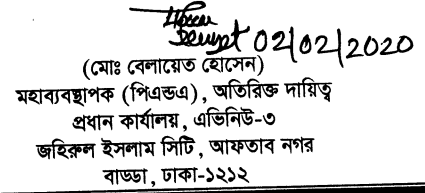 02/02/2020
(মোঃ বেলায়েত হোসেন)
মহাব্যবস্থাপক (পিএন্ডএ), অতিরিক্ত দায়িত্ব
প্রধান কার্যালয়, এভিনিউ-৩
জহিরুল ইসলাম সিটি, আফতাব নগর
বাড্ডা, ঢাকা-১২১২